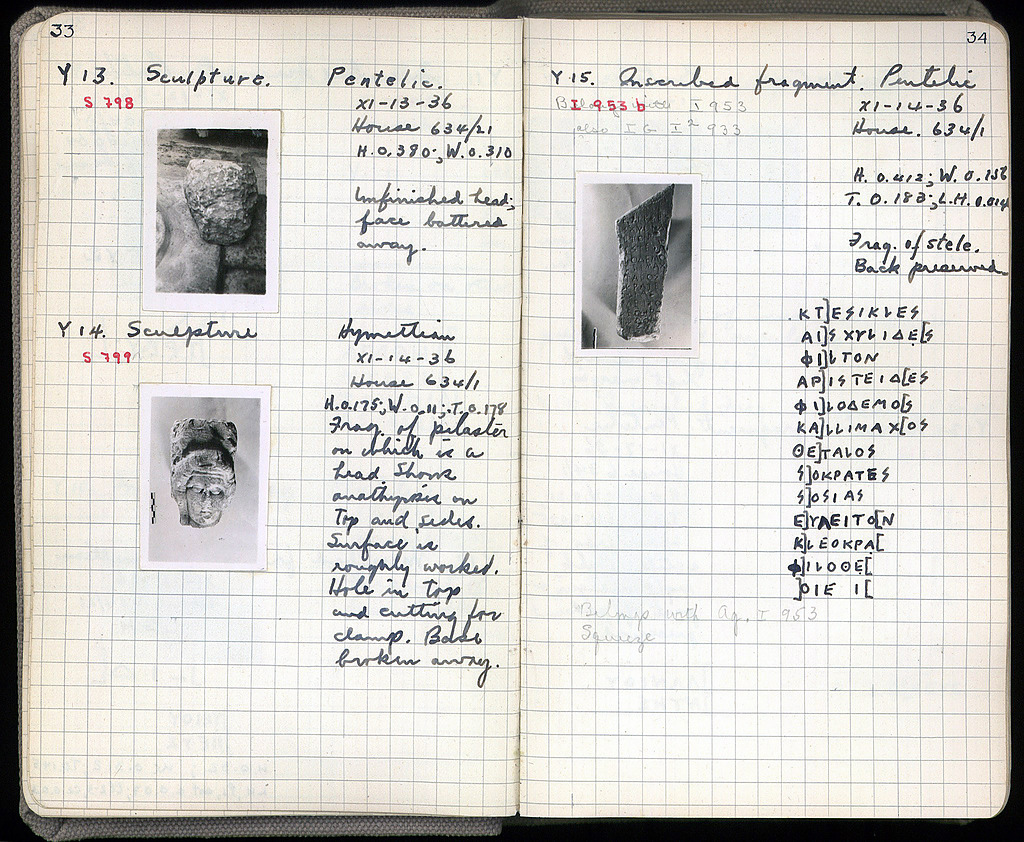 33
Y 13. Sculpture. Pentelic.
S 798
XI-13-36
House 634/21
H.0.380; W.0.310
Unfinished head;
face battered
away.
Y 14. Sculpture Hymettian
S 799
XI-14-36
House 634/1
H.0.175; W.0.11; T.0.178
Frag. of pilaster
on which is a
head. Shows
anathyrosis on
Top and sides.
Surface is
roughly worked.
Hole in top
and cutting for
clamp. Base
broken away.
34
Y 15. Inscribed fragment. Pentelic
I 953 b
Belongs with I 953
also IG I² 933
XI-14-36
House. 634/1
H. 0.412; W. 0.156
T. 0.183; L.H. 0.014
Frag. of stele.
Back preserved
ΚΤ]ΕSΙΚLΕS
ΑΙ]SΧΥLΙΔΕ[S
ΦΙ]LΤΟΝ
ΑΡ]ΙSΤΕΙΔ[ΕS
ΦΙ]LΟΔΕΜΟ[S
ΚΑ]LLΙΜΑΧ[ΟS
ΘΕ]ΤΑLΟS
S]ΟΚΡΑΤΕS
S]ΟSΙΑS
Ε]ΥΛΕΙΤΟ[Ν
Κ]LΕΟΚΡΑ[
Φ]ΙLΟΘΕ[
]ΟΙΕ Ι[
Belongs with Ag. I 953
Squeeze